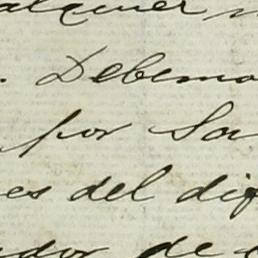 alquier
. Debemo
por Sa
es del dif
ador de